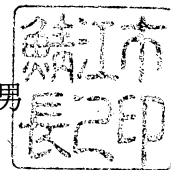 男
鯖江市
長之印